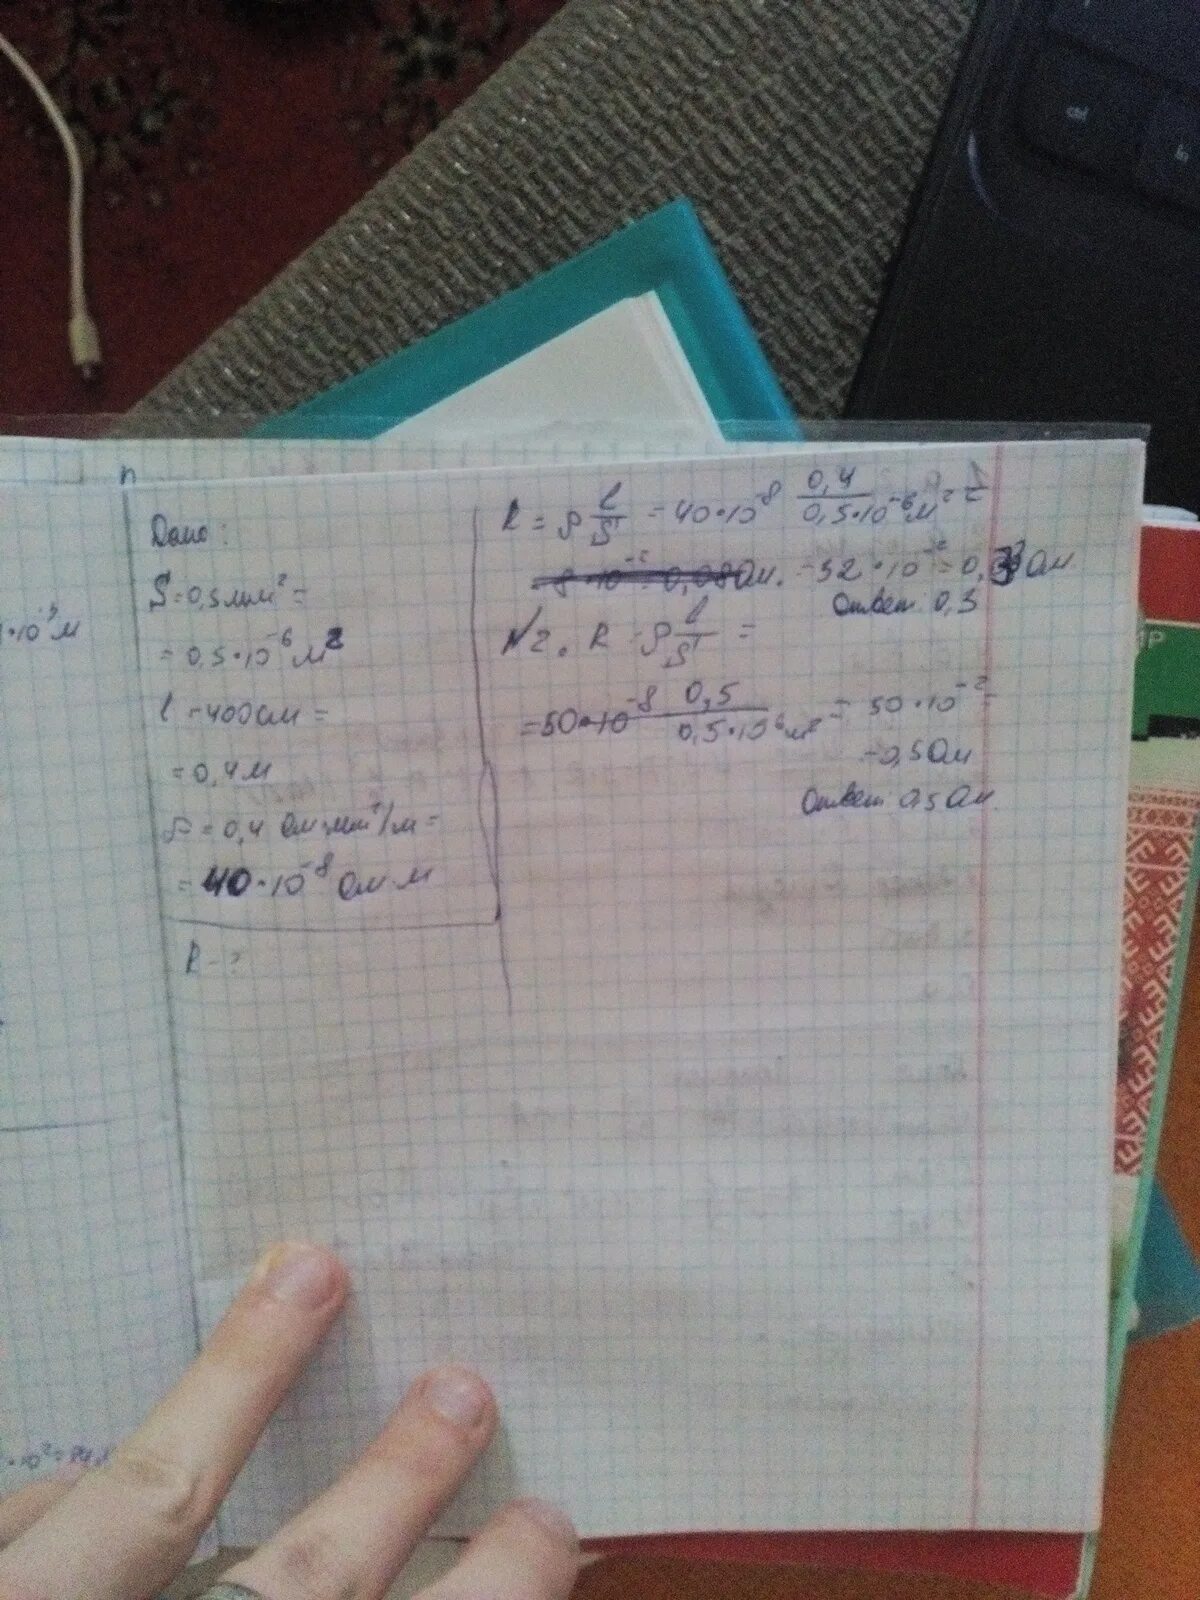 Дано:
S=0,5мм²=
=0,5•10⁻⁶м²
l=400см=
=0,4м
ρ=0,4 Ом•мм²/м=
=40•10⁻⁸ Ом•м
R-?
R=ρ l/S=40•10⁻⁸ 0,4/0,5•10⁻⁶м² =
=32•10⁻²=0,3 Ом
Ответ: 0,3
№2. R=ρ l/S =
=50•10⁻⁸ 0,5/0,5•10⁻⁶м² = 50•10⁻²=
=0,5Ом
Ответ: 0,5 Ом.